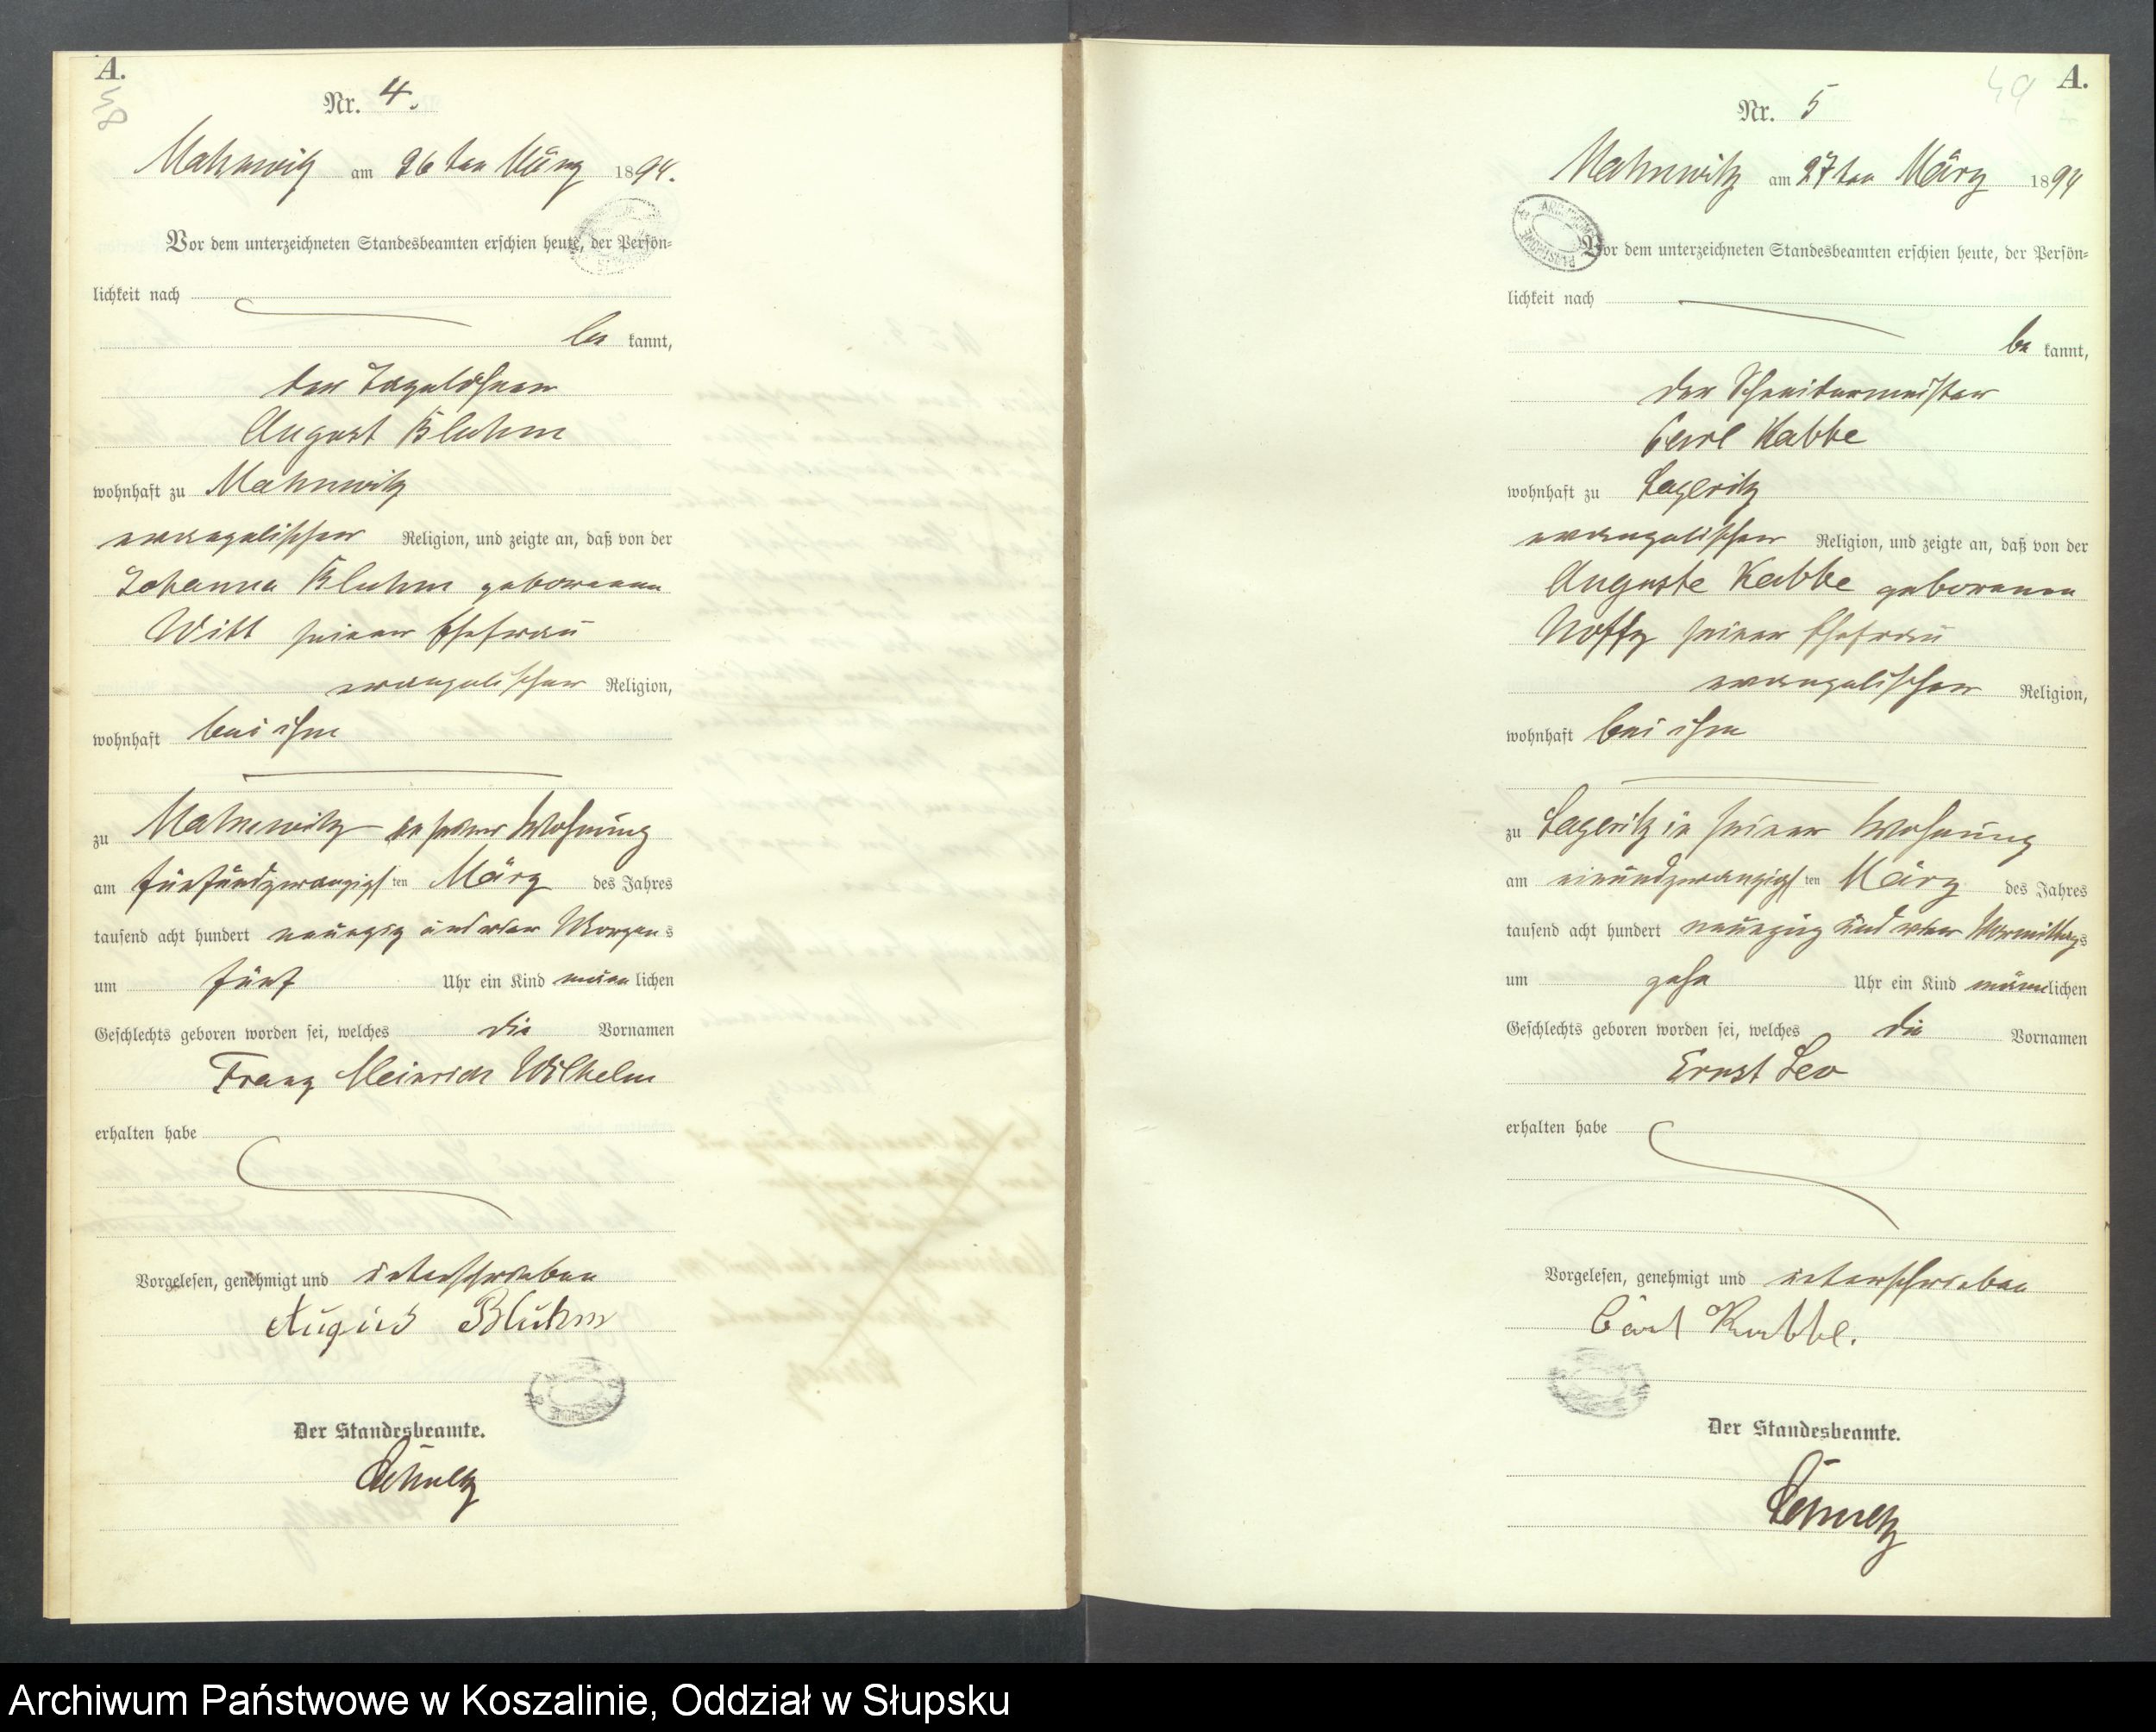 A.
48
Nr. 4.
Mahnwitz am 26ten März 1894.
Vor dem unterzeichneten Standesbeamten erschien heute, der Persön-
lichkeit nach
be kannt,
der Tagelöhner
August Bluhm
wohnhaft zu Mahnwitz
evangelischer Religion, und zeigte an, daß von der
Johanna Bluhm geborenen
Witt seiner Ehefrau
evangelischer Religion,
wohnhaft bei ihm
zu Mahnwitz in seiner Wohnung
am fünfundzwanzigsten März des Jahres
tausend acht hundert neunzig und vier Morgens
um fünf Uhr ein Kind männlichen
Geschlechts geboren worden sei, welches die Vornamen
Franz Heinrich Wilhelm
erhalten habe
Vorgelesen, genehmigt und unterschrieben
August Bluhm
Der Standesbeamte.
Schultz
A.
49
Nr. 5
Mahnwitz am 27ten März 1894
Vor dem unterzeichneten Standesbeamten erschien heute, der Persön-
lichkeit nach
be kannt,
der Schneidermeister
Carl Kabbe
wohnhaft zu
evangelischer Religion, und zeigte an, daß von der
Auguste Kabbe geborenen
Noffz seiner Ehefrau
evangelischer Religion,
wohnhaft bei ihm
zu in seiner Wohnung
am einundzwanzigsten März des Jahres
tausend acht hundert neunzig und vier Vormittags
um zehn Uhr ein Kind männlichen
Geschlechts geboren worden sei, welches die Vornamen
Ernst Leo
erhalten habe
Vorgelesen, genehmigt und unterschrieben
Carl Kabbe.
Der Standesbeamte.
Schultz
Archiwum Państwowe w Koszalinie, Oddział w Słupsku